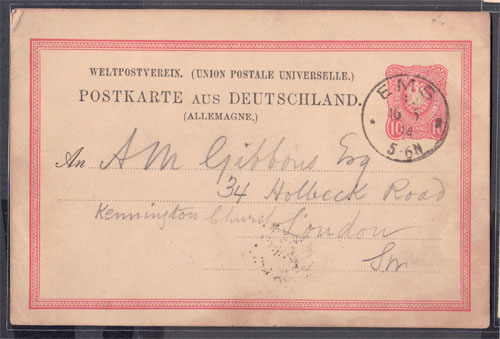 WELTPOSTVEREIN. (UNION POSTALE UNIVERSELLE.)
POSTKARTE AUS DEUTSCHLAND.
(ALLEMAGNE.)
EMS
16
5-6N
10 10
An A M Gibbons Esq
34 Holbeck Road
Kennington Church London
SW